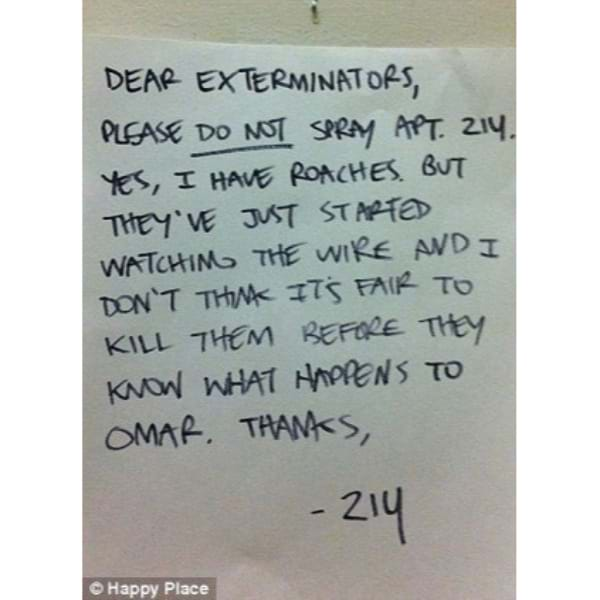 DEAR EXTERMINATORS,
PLEASE DO NOT SPRAY APT. 214.
YES, I HAVE ROACHES. BUT
THEY'VE JUST STARTED
WATCHING THE WIRE AND I
DON'T THINK IT'S FAIR TO
KILL THEM BEFORE THEY
KNOW WHAT HAPPENS TO
OMAR. THANKS,
- 214
© Happy Place